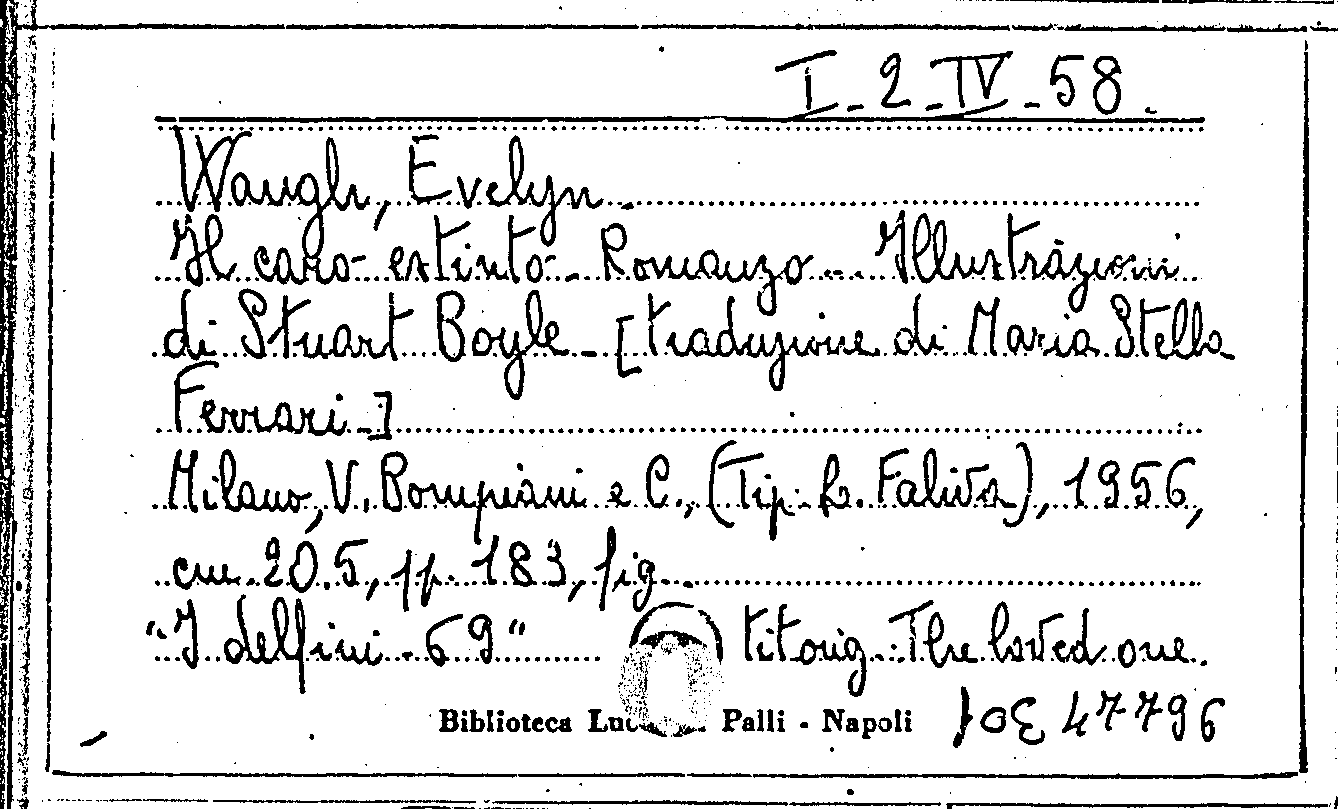 I-2-IV-58.
Waugh, Evelyn.
Il caro estinto - Romanzo - Illustrazioni
di Stuart Boyle - [traduzione di Maria Stella
Ferrari -]
Milano, V. Bompiani e C., (Tip. L. Faliva), 1956,
cm. 20.5, pp. 183, fig.
"I delfini - 69" tit. orig.: The loved one.
Biblioteca Palli - Napoli 47796